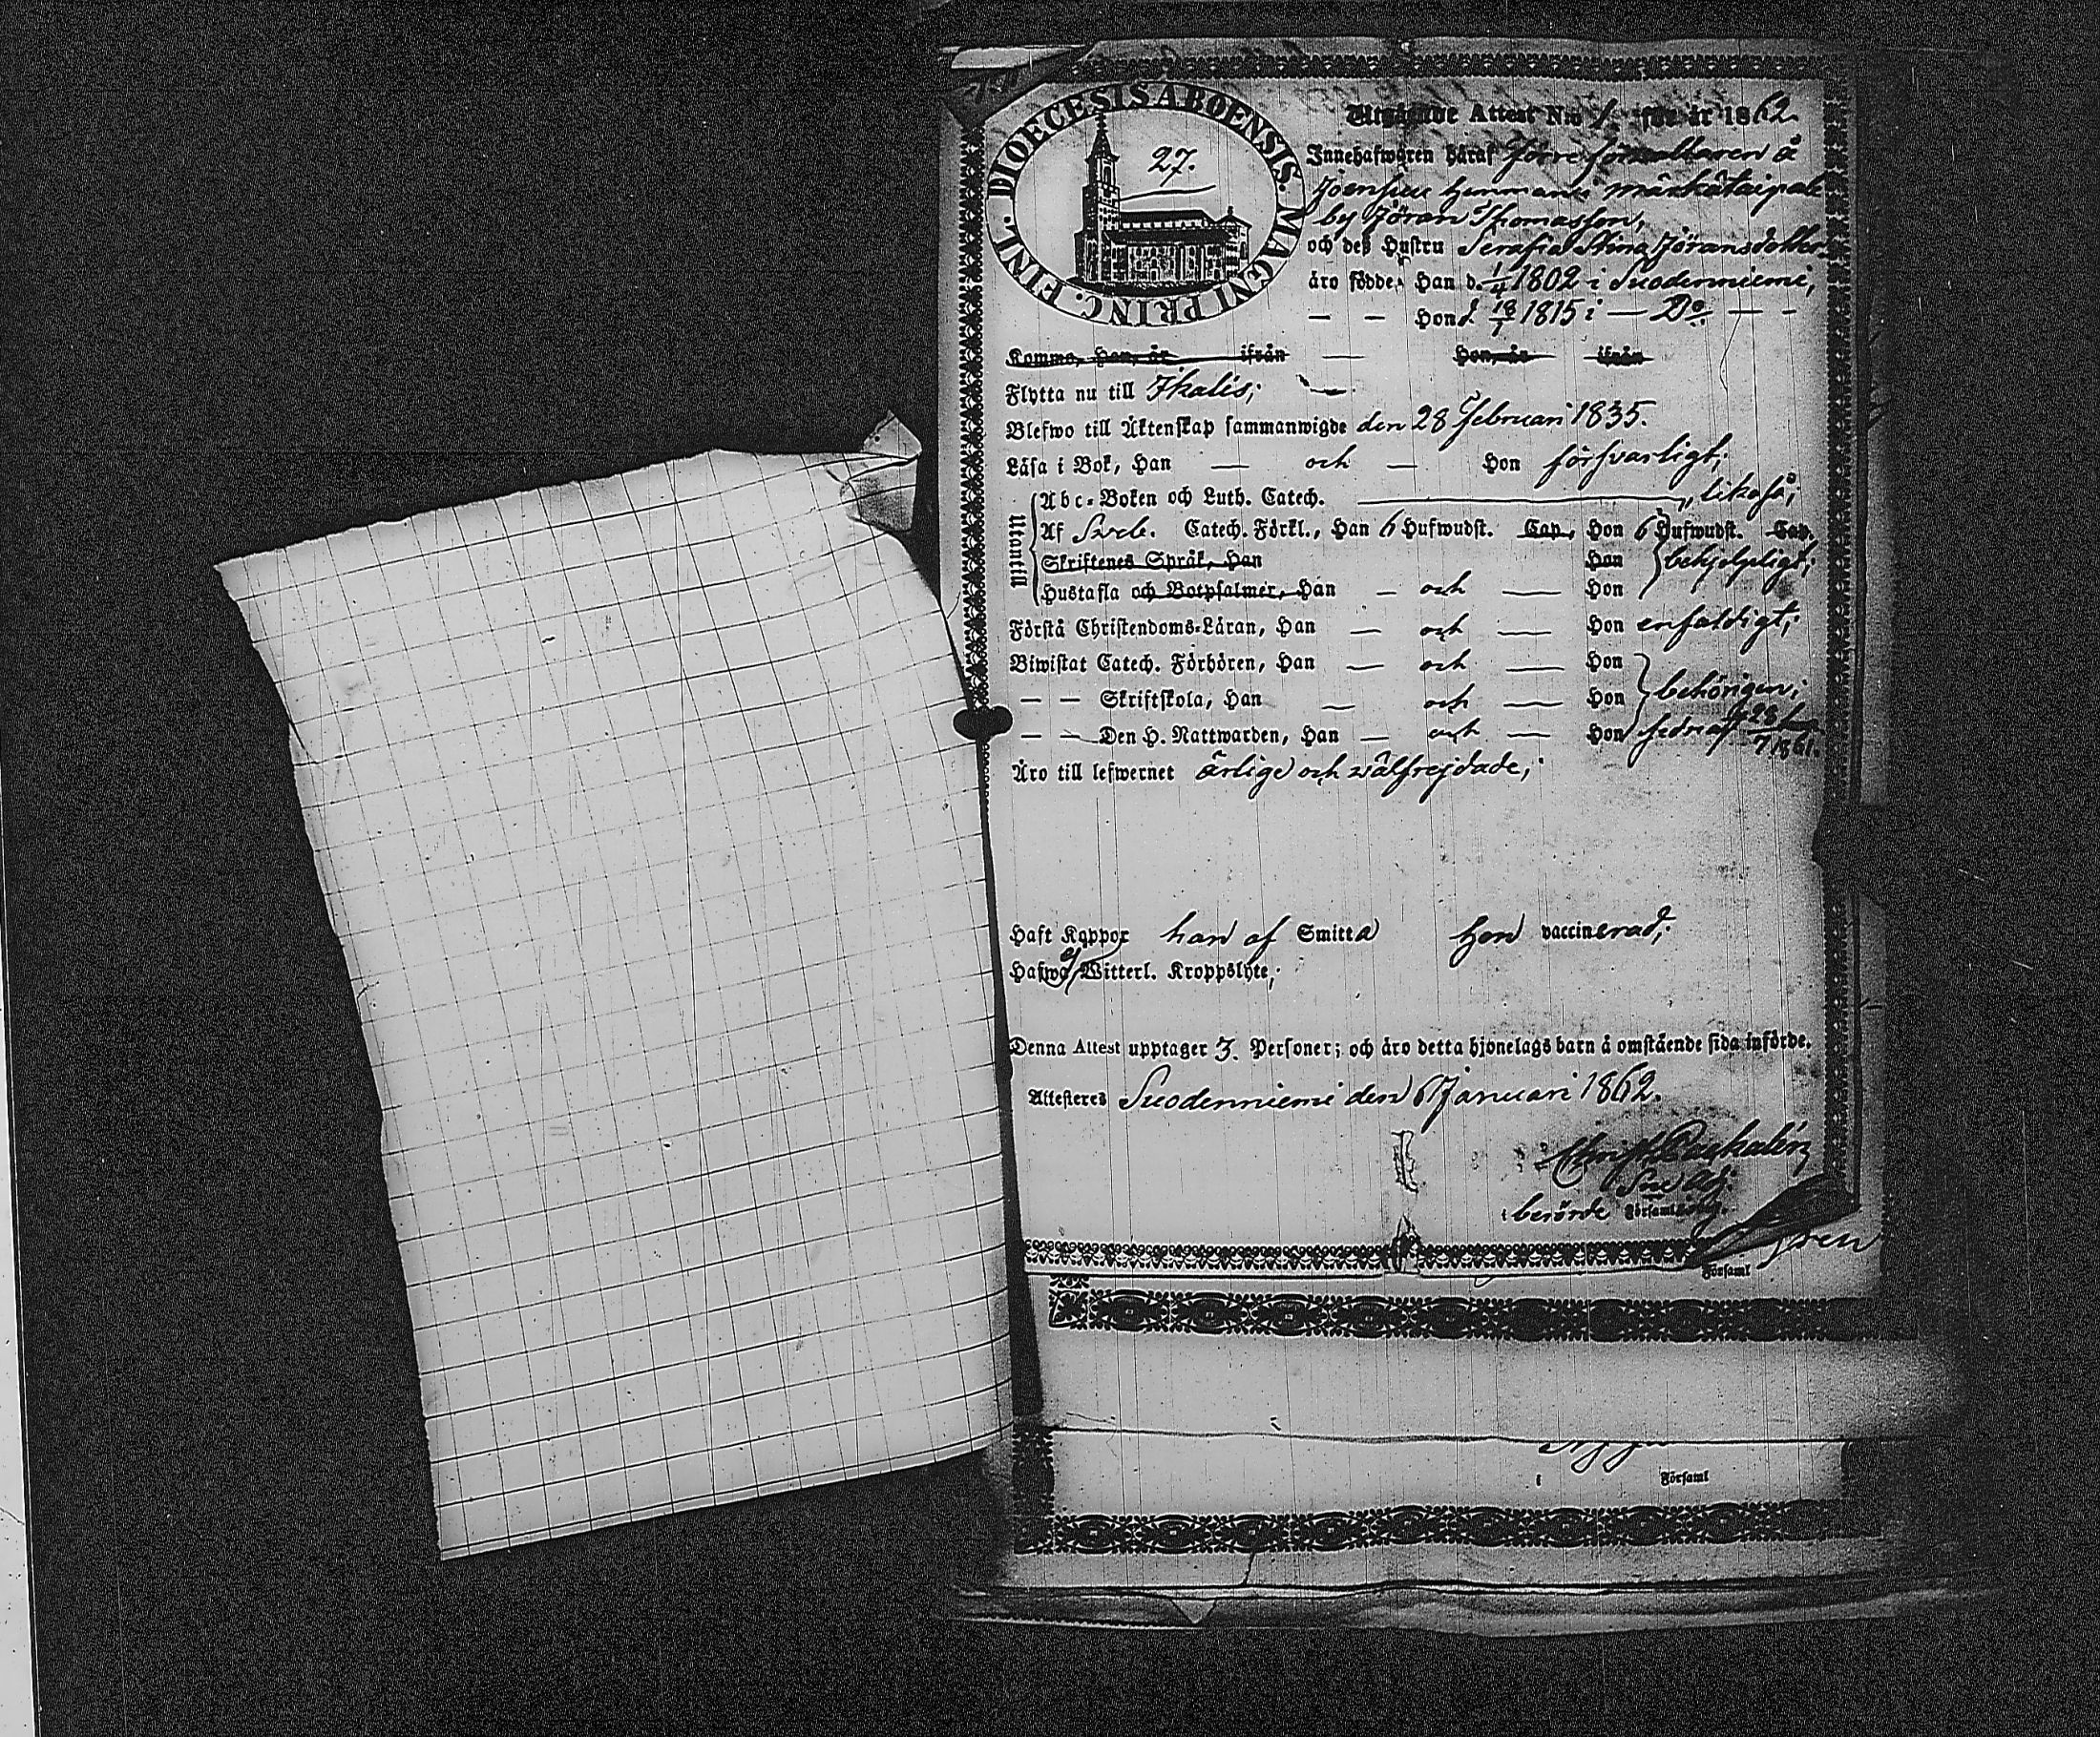 DIOECESIS ABOENSIS. MAGNI PRINC. FINL.
27.
Utgående Attest N:o 1. för år 1862
Innehafwaren häraf förre förvaltaren å
Joensuu hemman i Märkätaipale
by Jöran Thomasson,
och deß Hustru Serafia Stina Jöransdotter
äro födde, Han d. 1/4 1802 i Suodenniemi,
— — Hon d. 18/1 1815 i — D:o — -
Komma, Han, år ifrån — Hon, år ifrån
Flytta nu till Ikalis;
Blefwo till Äktenskap sammanwigde den 28 Februari 1835.
Läsa i Bok, Han — och — Hon försvarligt;
Utantill
Abc-Boken och Luth. Catech. — likaså;
Af Sveb. Catech. Förkl., Han 6 Hufwudst. Cap. Hon 6 Hufwudst. Cap.
Skriftenes Språk, Han Hon behjelpligt;
Hustafla och Botpsalmer, Han — och — Hon
Förstå Christendoms-Läran, Han — och — Hon enfaldigt;
Biwistat Catech. Förhören, Han — och — Hon
— — Skriftskola, Han — och — Hon behörigen;
— — Den H. Nattwarden, Han — och — Hon sednast 28/7 1861.
Äro till lefwernet ärlige och välfrejdade;
Haft Koppor han af Smitta Hon vaccinerad;
Hafwa ej Witterl. Kroppslyte;
Denna Attest upptager 3. Personer; och äro detta hjonelags barn å omstående sida införde.
Attesteras Suodenniemi den 6 Januari 1862.
i berörde Församling.
Församl
i Församl